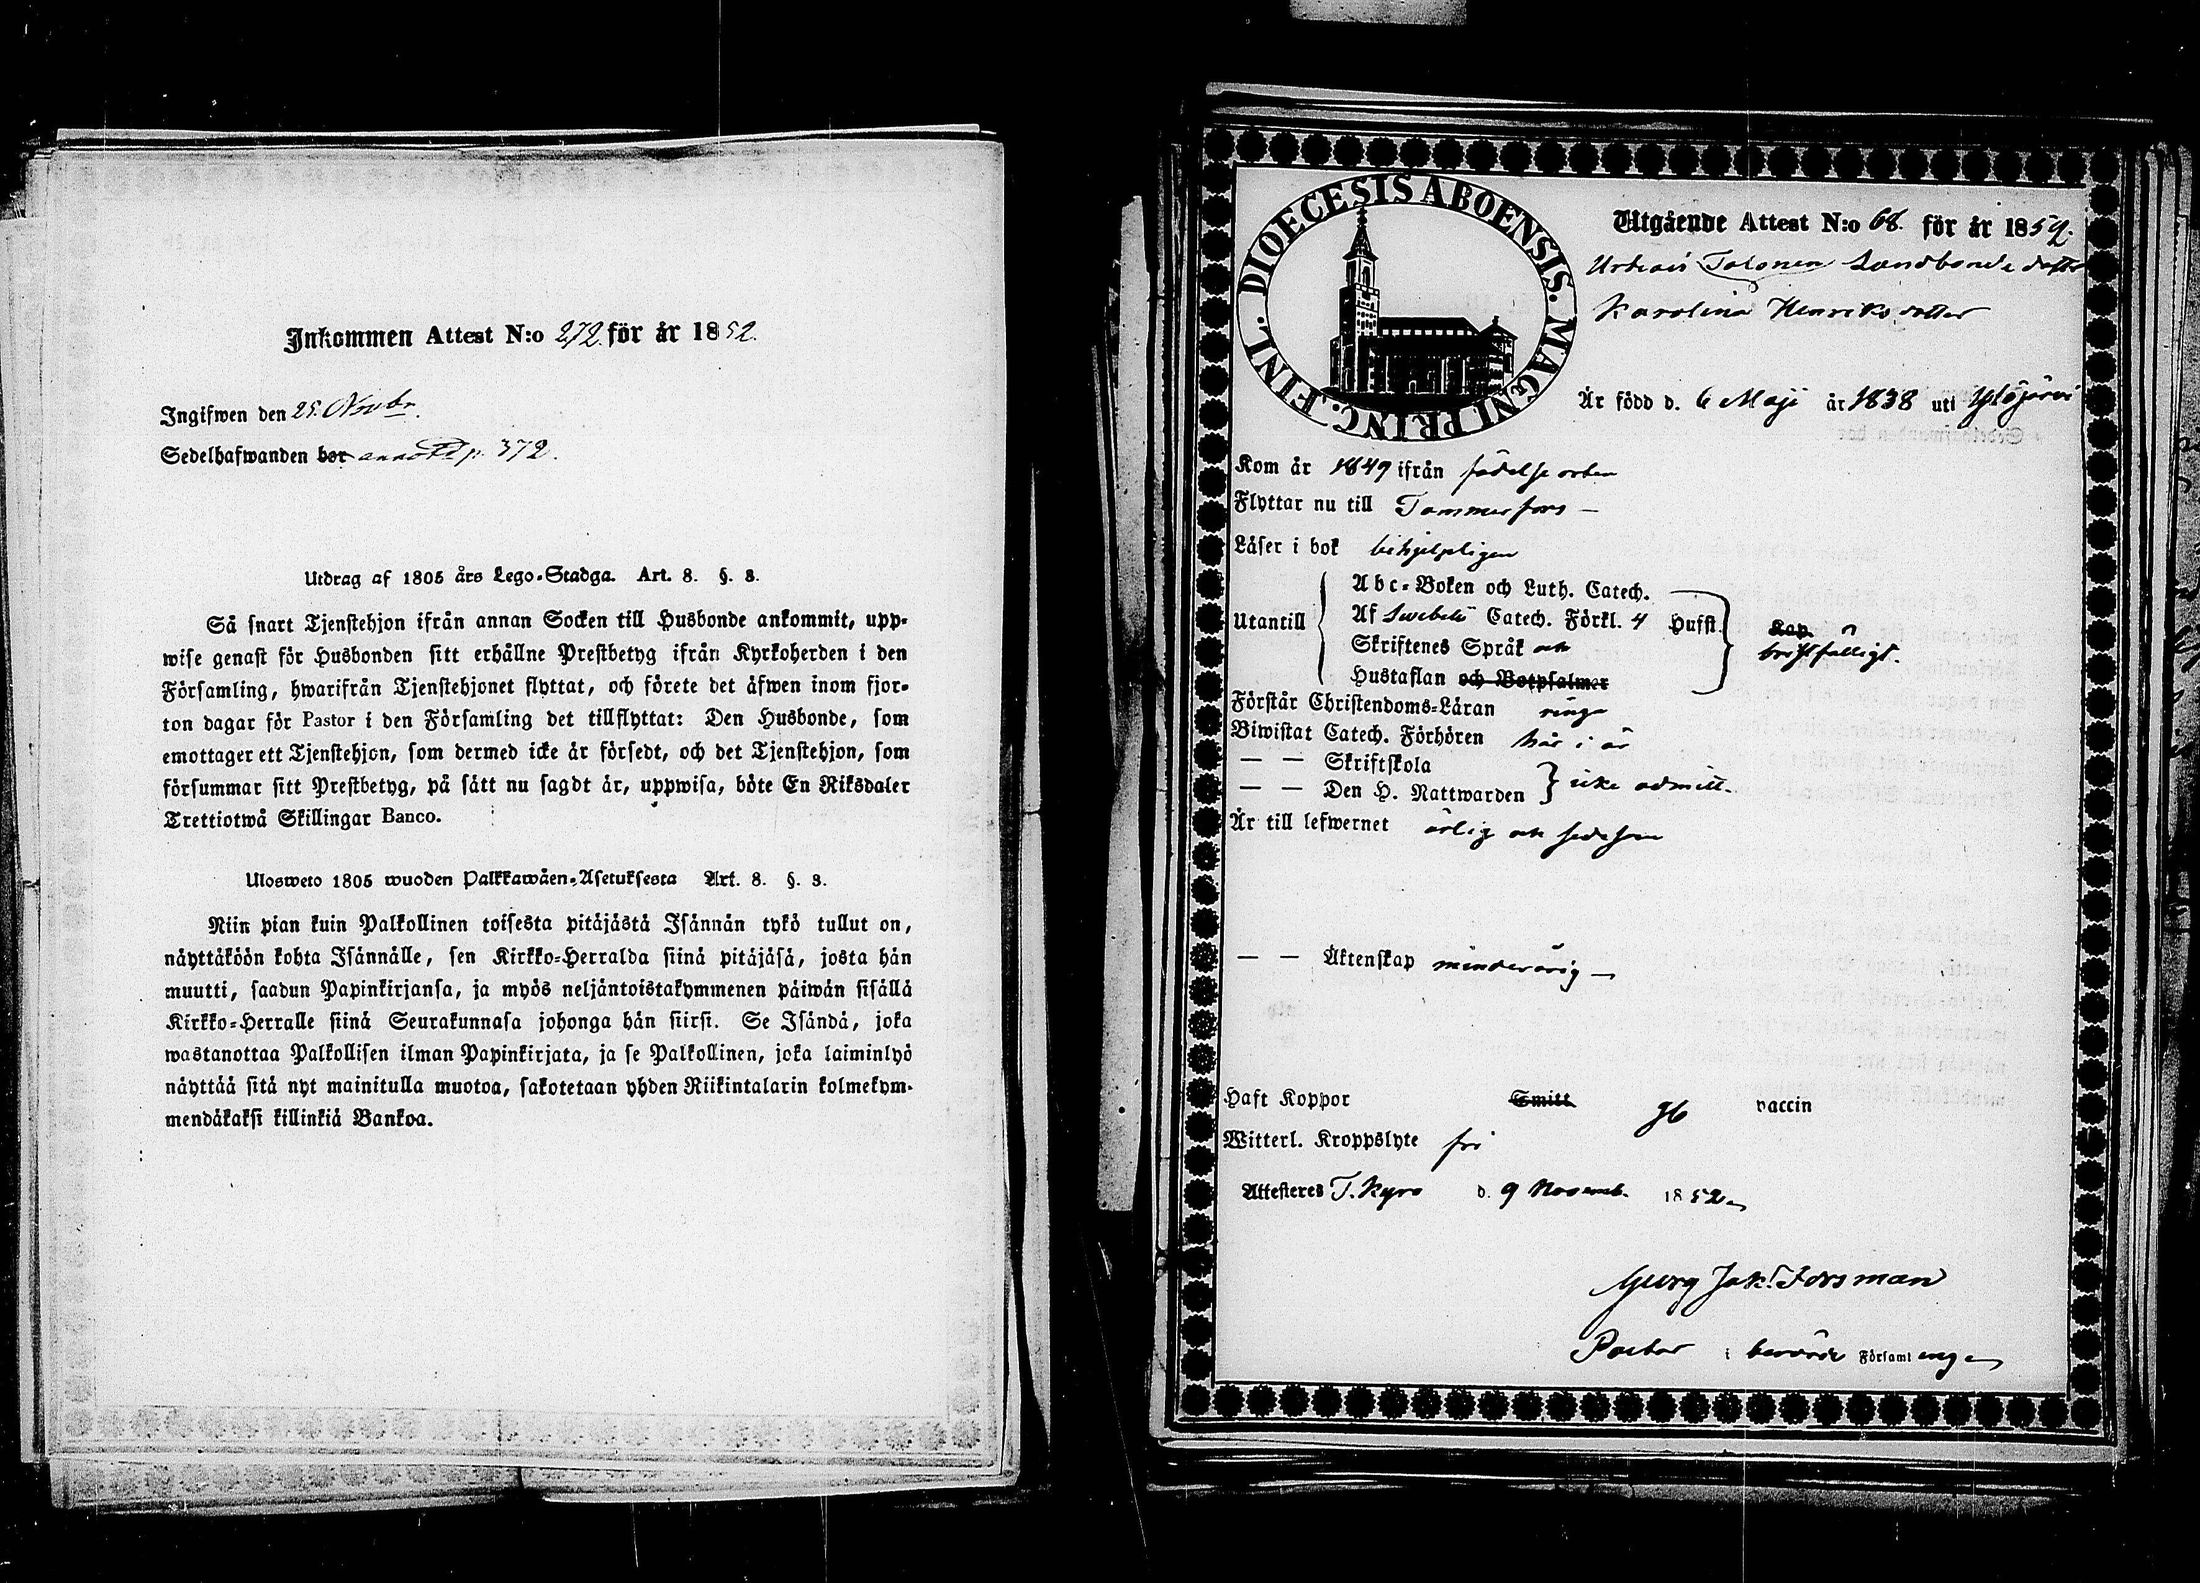 Inkommen Attest N:o 272. för år 1852.
Ingifwen den 25. Novbr.
Sedelhafwanden bor annoterad p. 372.
Utdrag af 1805 års Lego-Stadga. Art. 8. §. 8.
Så snart Tjenstehjon ifrån annan Socken till Husbonde ankommit, upp-
wise genast för Husbonden sitt erhållne Prestbetyg ifrån Kyrkoherden i den
Församling, hwarifrån Tjenstehjonet flyttat, och förete det äfwen inom fjor-
ton dagar för Pastor i den Församling det tillflyttat: Den Husbonde, som
emottager ett Tjenstehjon, som dermed icke är försedt, och det Tjenstehjon, som
försummar sitt Prestbetyg, på sätt nu sagdt är, uppwisa, böte En Riksdaler
Trettiotwå Skillingar Banco.
Ulosweto 1805 wuoden Palkkawäen-Asetuksesta Art. 8. §. 8.
Niin pian kuin Palkollinen toisesta pitäjästä Isännän tykö tullut on,
näyttäköön kohta Isännälle, sen Kirkko-Herralda siinä pitäjäsä, josta hän
muutti, saadun Papinkirjansa, ja myös neljäntoistakymmenen päiwän sisällä
Kirkko-Herralle siinä Seurakunnasa johonga hän siirsi. Se Isändä, joka
wastanottaa Palkollisen ilman Papinkirjata, ja se Palkollinen, joka laiminlyö
näyttää sitä nyt mainitulla muotoa, sakotetaan yhden Riikintalarin kolmekym-
mendäkaksi killinkiä Bankoa.
DIOECESIS ABOENSIS. MAGNI PRINC. FINL.
Utgående Attest N:o 68. för år 1852.
Talonen Landbonde dotter
Karolina Henriksdotter
Är född d. 6 Maji år 1838 uti Ylöjärvi
Kom år 1849 ifrån födelse orten
Flyttar nu till Tammerfors —
Läser i bok behjelpligen
Utantill
Abc-Boken och Luth. Catech.
Af Swebelii Catech. Förkl. 4 Hufst.
Skriftenes Språk och
Hustaflan och Botpsalmer
Kap.
bristfälligt.
Förstår Christendoms-Läran ringa
Biwistat Catech. Förhören här i år
— — Skriftskola
— — Den H. Nattwarden } icke admitt.
Är till lefwernet ärlig och sedesam
— — Äktenskap minderårig —
Haft Koppor Smitt gb vaccin
Witterl. Kroppslyte fri
Attesteres T. Kyro d. 9 Novemb. 1852
Georg Jak. Forsman
Pastor i berörde Församlingen